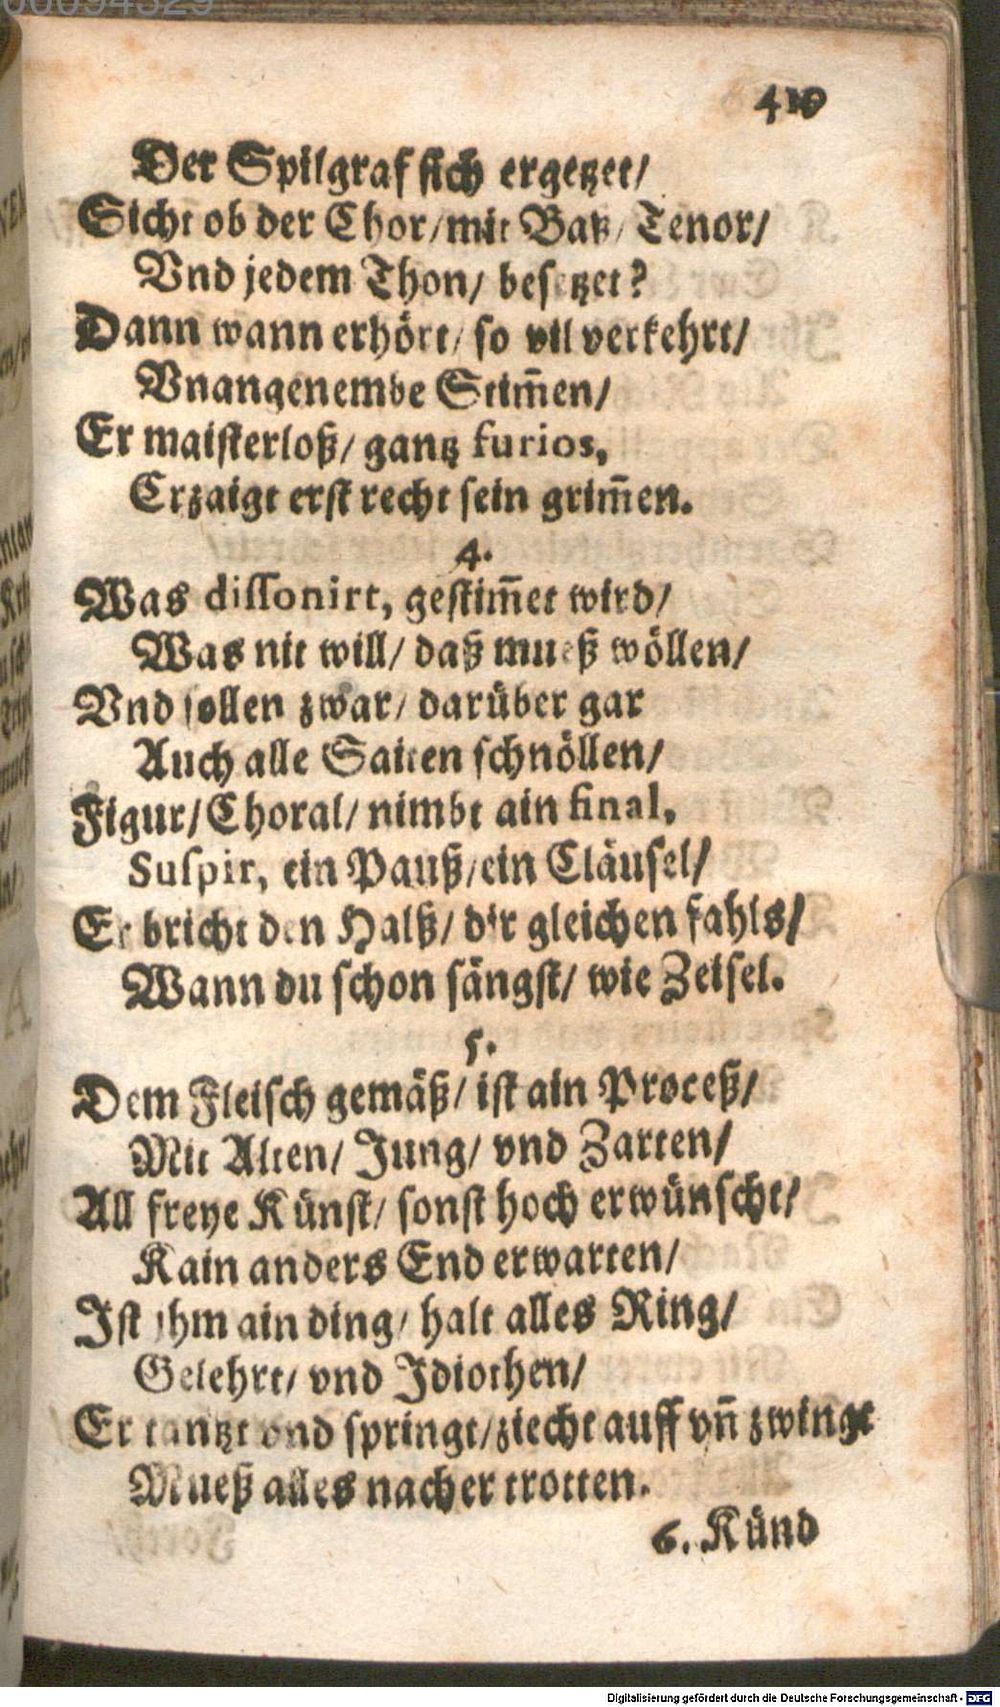 410
Der Spilgraf sich ergetzet/
Sicht ob der Chor/mit Baß/Tenor/
Vnd jedem Thon/ besetzet?
Dann wann erhört/ so vil verkehrt/
Vnangenembe Stim̄en/
Er maisterloß/ gantz furios,
Erzaigt erst recht sein grim̄en.
4.
Was dissonirt, gestim̄et wird/
Was nit will/ daß mueß wöllen/
Vnd sollen zwar/ darüber gar
Auch alle Saiten schnöllen/
Figur/Choral/ nimbt ain final,
Suspir, ein Pauß/ein Cläusel/
Er bricht den Halß/ dir gleichen fahls/
Wann du schon sängst/ wie Zeisel.
5.
Dem Fleisch gemäß/ ist ain Proceß/
Mit Alten/ Jung/ vnd Zarten/
All freye Künst/ sonst hoch erwünscht/
Kain anders End erwarten/
Ist ihm ain ding/ halt alles Ring/
Gelehrt/ vnd Idiothen/
Er tantzt vnd springt/ziecht auff vn̄ zwingt
Mueß alles nacher trotten.
6. Künd
Digitalisierung gefördert durch die Deutsche Forschungsgemeinschaft - DFG